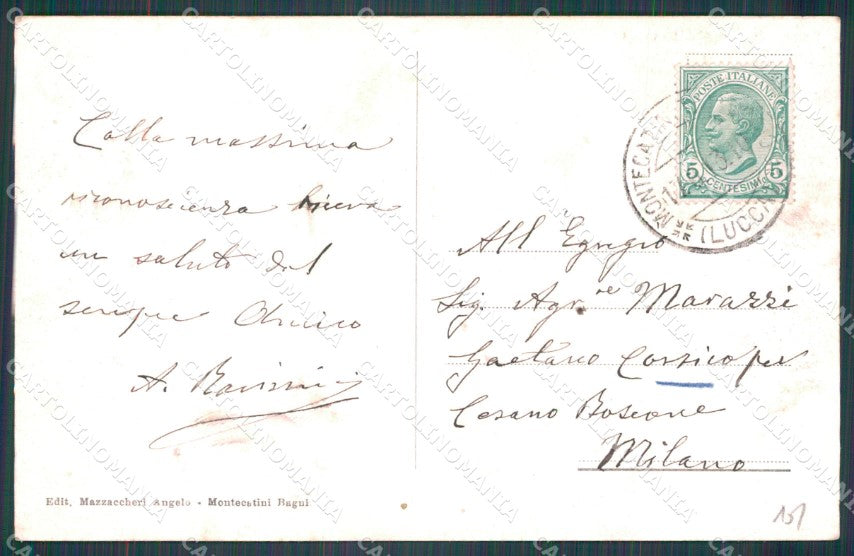 Colla massima
riconoscenza riceva
un saluto dal
sempre Amico
A.
Edit. Mazzaccheri Angelo - Montecatini Bagni
POSTE ITALIANE
5 CENTESIMI 5
MONTECATINI
(LUCCA
All Egregio
Sig. Agr.re Marazzi
Gaetano Corsico per
Cesano Boscone
Milano
CARTOLINOMANIA